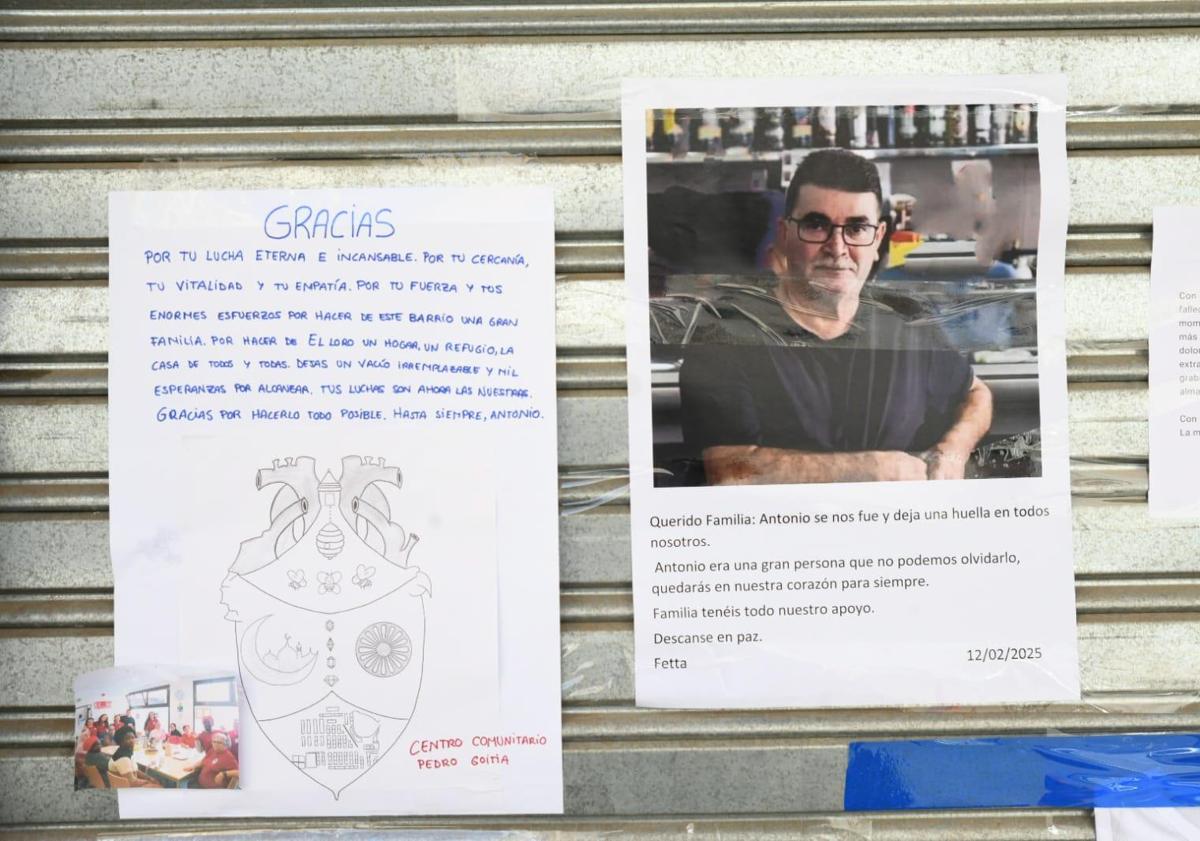 GRACIAS
POR TU LUCHA ETERNA E INCANSABLE. POR TU CERCANÍA,
TU VITALIDAD Y TU EMPATÍA. POR TU FUERZA Y TUS
ENORMES ESFUERZOS POR HACER DE ESTE BARRIO UNA GRAN
FAMILIA. POR HACER DE EL LORO UN HOGAR, UN REFUGIO, LA
CASA DE TODOS Y TODAS. DEJAS UN VACÍO IRREMPLAZABLE Y MIL
ESPERANZAS POR ALCANZAR. TUS LUCHAS SON AHORA LAS NUESTRAS.
GRACIAS POR HACERLO TODO POSIBLE. HASTA SIEMPRE, ANTONIO.
CENTRO COMUNITARIO
PEDRO GOITIA
Querido Familia: Antonio se nos fue y deja una huella en todos
nosotros.
Antonio era una gran persona que no podemos olvidarlo,
quedarás en nuestra corazón para siempre.
Familia tenéis todo nuestro apoyo.
Descanse en paz.
Fetta
12/02/2025
Con
falle
mor
más
dolor
extra
grab
alma
Con
La m